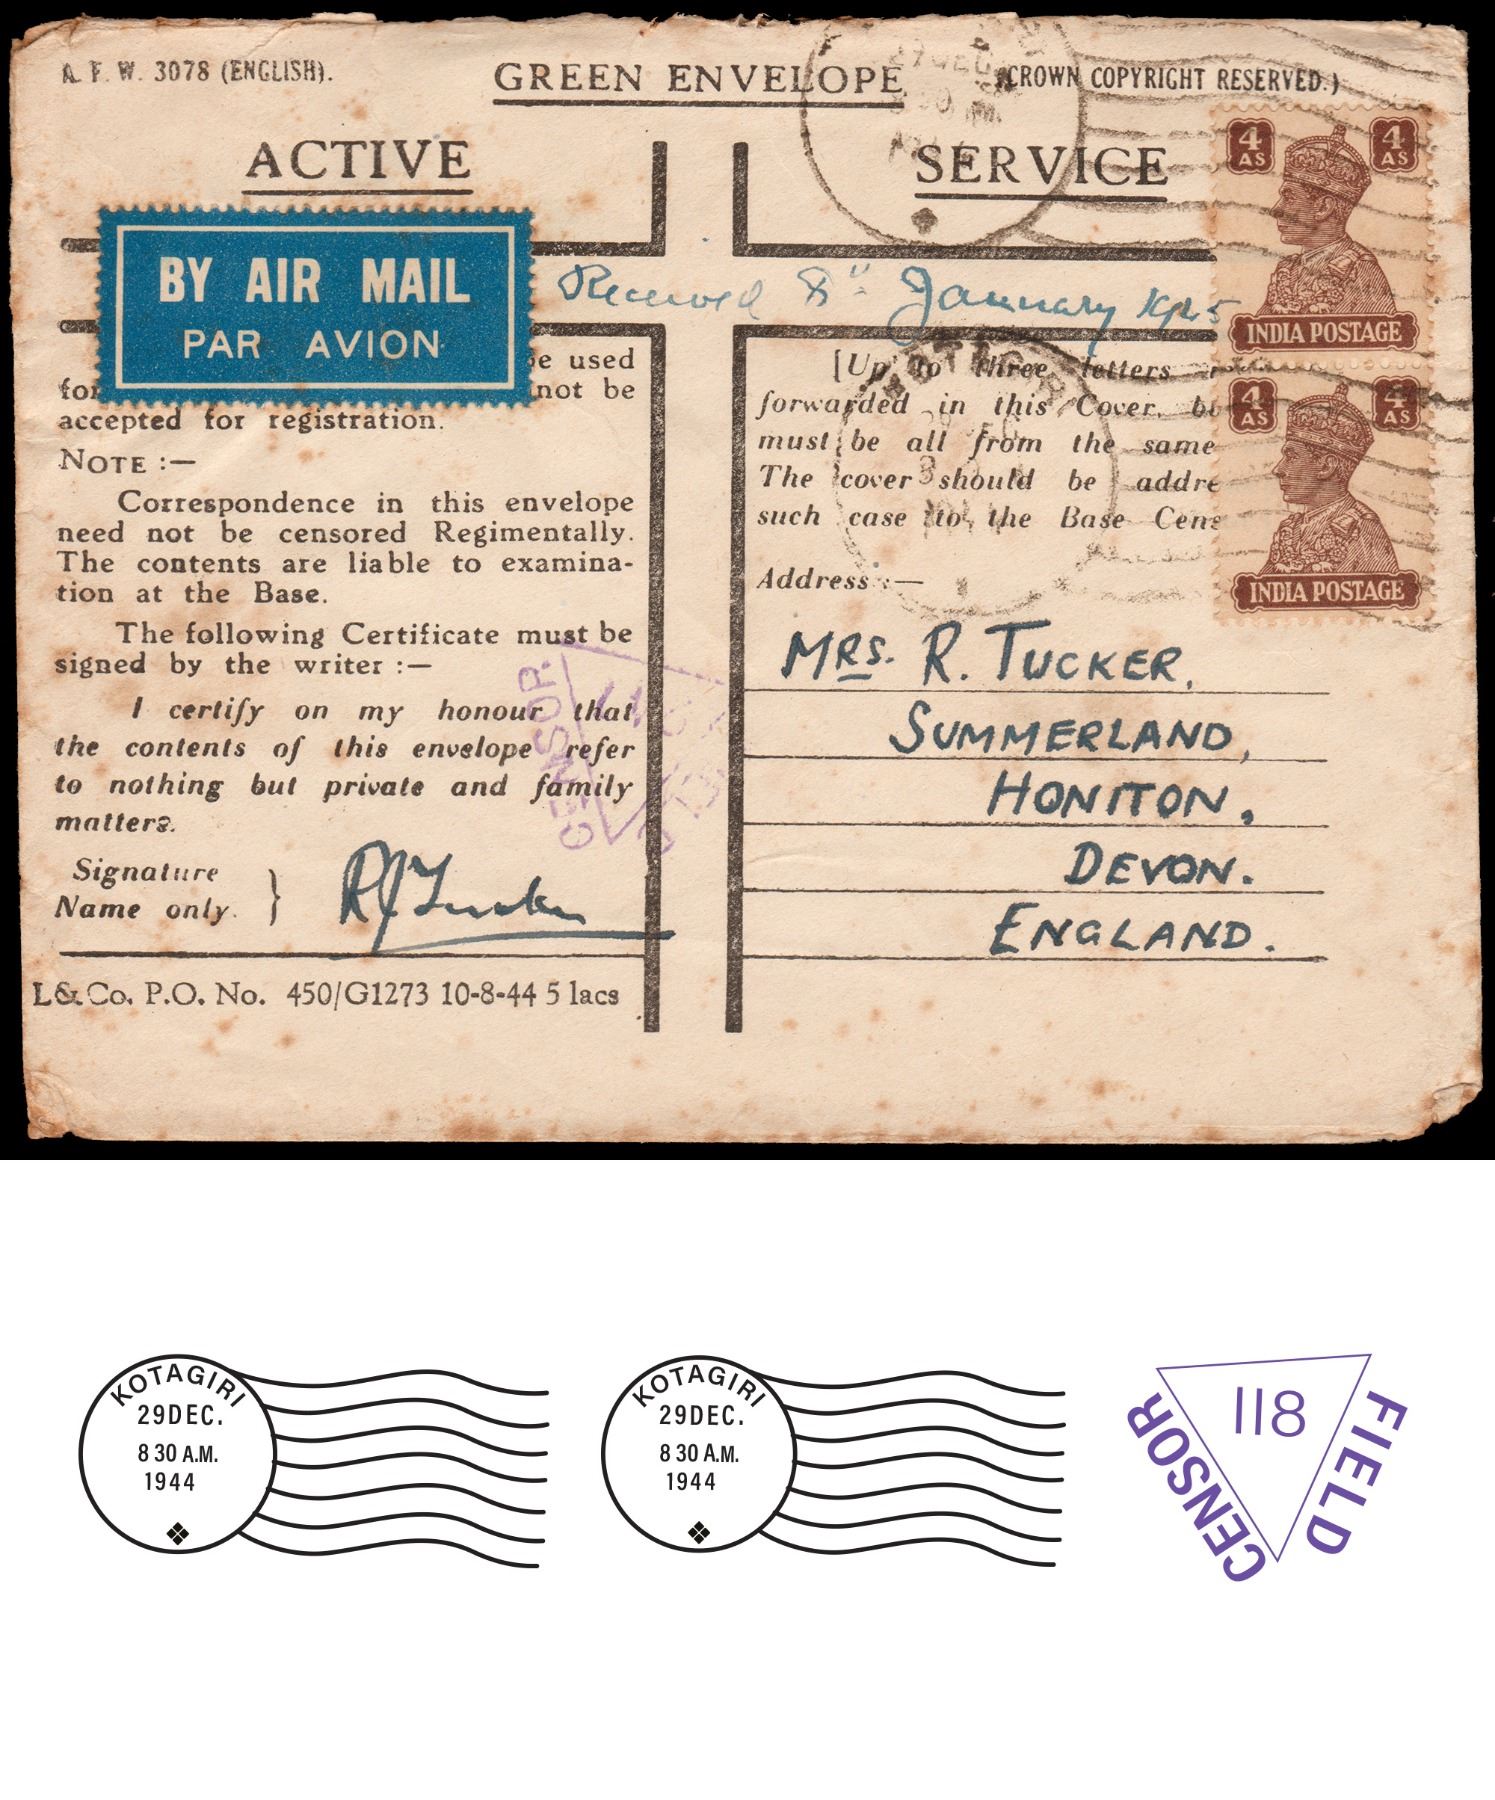 A. F. W. 3078 (ENGLISH).
GREEN ENVELOPE
(CROWN COPYRIGHT RESERVED.)
ACTIVE
SERVICE
4 AS
4 AS
INDIA POSTAGE
BY AIR MAIL
PAR AVION
Received 8" January 1945
be used
for
not be
accepted for registration.
NOTE :—
Correspondence in this envelope
need not be censored Regimentally.
The contents are liable to examina-
tion at the Base.
The following Certificate must be
signed by the writer :—
I certify on my honour that
the contents of this envelope refer
to nothing but private and family
matters.
Signature
Name only.
RJTucker
L&Co. P.O. No. 450/G1273 10-8-44 5 lacs
CENSOR
[Up to three letters
forwarded in this Cover,
must be all from the same
The cover should be
such case to the Base
4 AS
4 AS
INDIA POSTAGE
Address :—
MRS. R. TUCKER,
SUMMERLAND,
HONITON,
DEVON.
ENGLAND.
KOTAGIRI
29DEC.
8 30 A.M.
1944
KOTAGIRI
29DEC.
8 30 A.M.
1944
118
CENSOR
FIELD